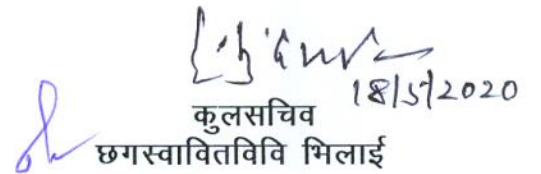 18/5/2020
कुलसचिव
छगस्वावितविवि भिलाई